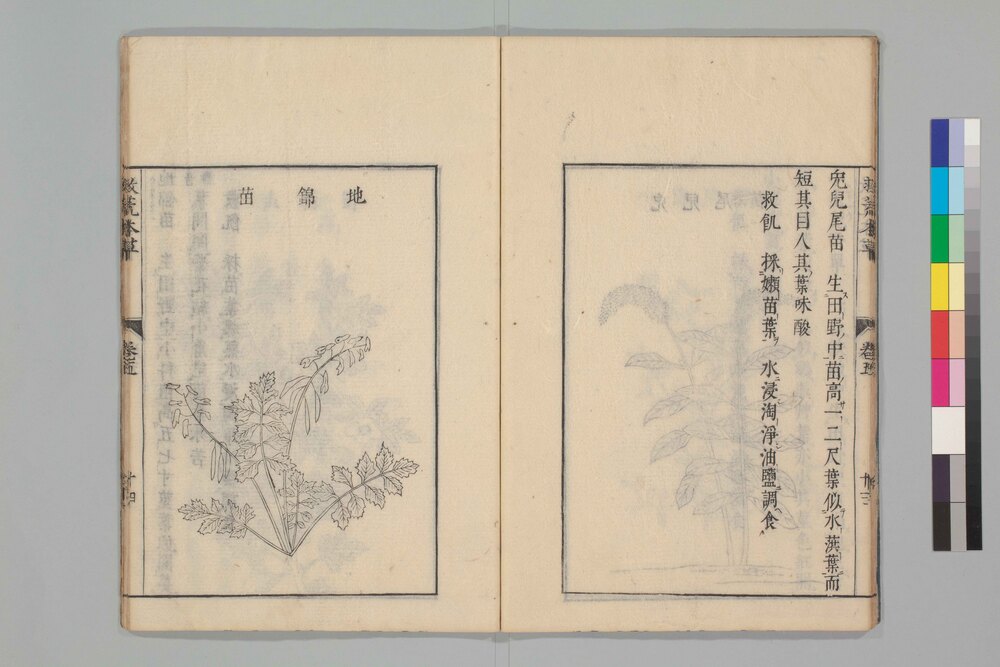 兒兒尾苗　生田野中苗高一二尺葉似水葓葉而
短其目人其葉味酸
救飢　採嫩苗葉水浸淘淨油鹽調食
救荒本草
卷五
廿三
地錦苗
救荒本草
卷五
廿四